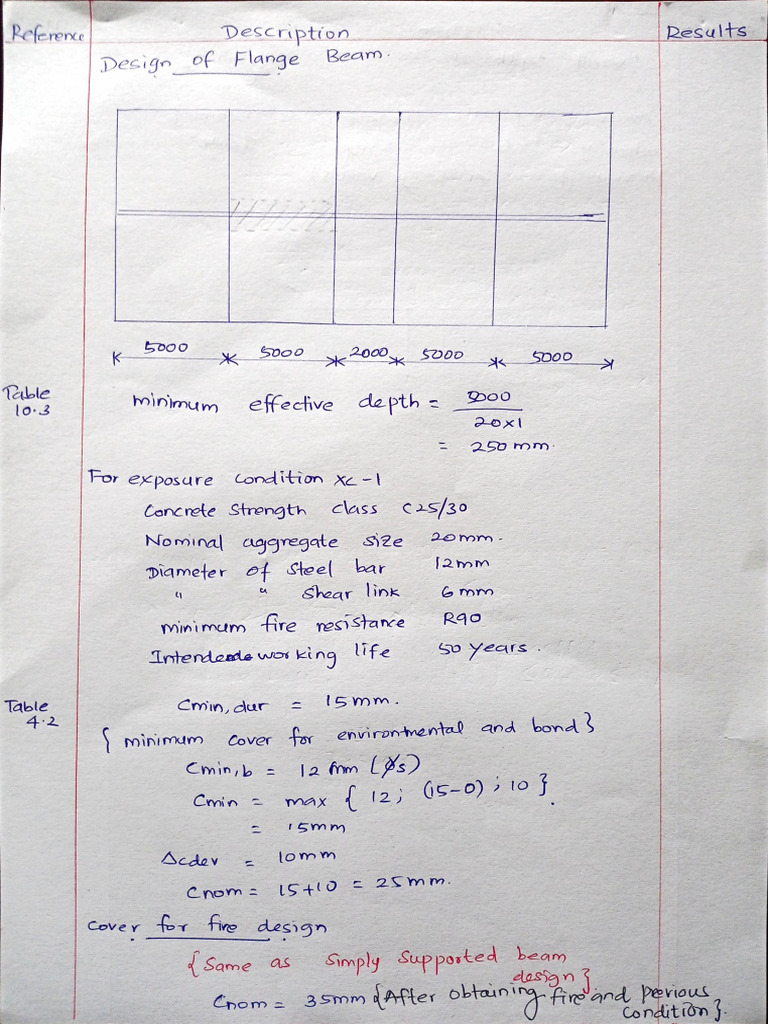 Reference Description Results
Design of Flange Beam.
5000 5000 2000 5000 5000
Table
10.3
minimum effective depth = 5000
20x1
= 250 mm.
For exposure condition XC-1
Concrete Strength class C25/30
Nominal aggregate size 20mm.
Diameter of Steel bar 12mm
" " Shear link 6 mm
minimum fire resistance R90
Intended working life 50 years.
Table
4.2
Cmin, dur = 15mm.
{ minimum cover for environmental and bond}
Cmin,b = 12 mm (φs)
Cmin = max { 12; (15-0); 10 }.
= 15mm
Δcdev = 10mm
Cnom = 15+10 = 25mm.
Cover for fire design
{Same as Simply Supported beam
design}
Cnom = 35mm {After obtaining fire and pervious
condition}.